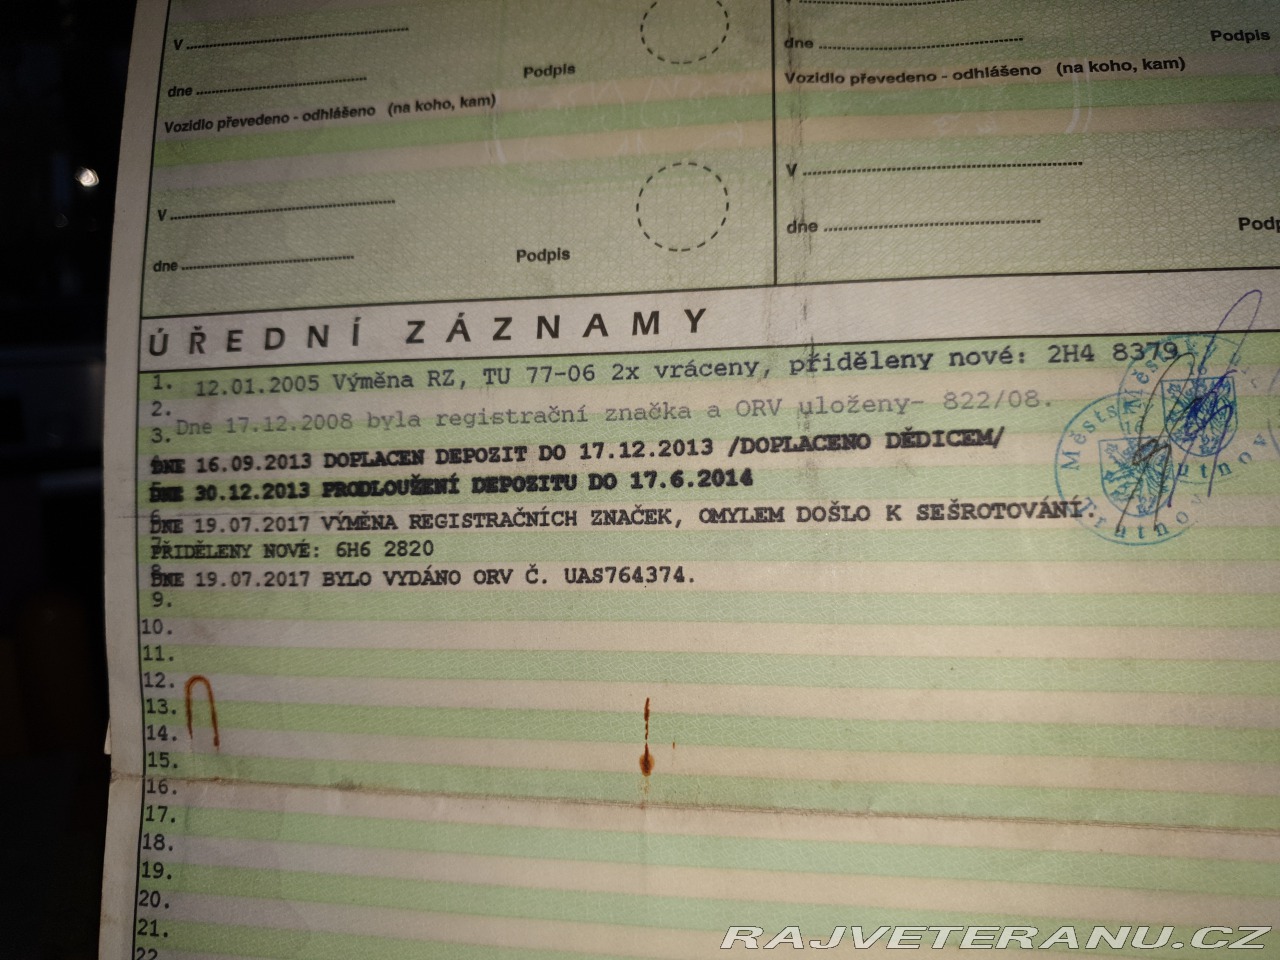 V
dne
Podpis
Vozidlo převedeno - odhlášeno (na koho, kam)
V
dne
Podpis
dne
Podpis
Vozidlo převedeno - odhlášeno (na koho, kam)
V
dne
Podp
ÚŘEDNÍ ZÁZNAMY
1. 12.01.2005 Výměna RZ, TU 77-06 2x vráceny, přiděleny nové: 2H4 8379
2.
3. Dne 17.12.2008 byla registrační značka a ORV uloženy- 822/08.
DNE 16.09.2013 DOPLACEN DEPOZIT DO 17.12.2013 /DOPLACENO DĚDICEM/
DNE 30.12.2013 PRODLOUŽENÍ DEPOZITU DO 17.6.2014
DNE 19.07.2017 VÝMĚNA REGISTRAČNÍCH ZNAČEK, OMYLEM DOŠLO K SEŠROTOVÁNÍ.
PŘIDĚLENY NOVÉ: 6H6 2820
DNE 19.07.2017 BYLO VYDÁNO ORV Č. UAS764374.
9.
10.
11.
12.
13.
14.
15.
16.
17.
18.
19.
20.
21.
22
RAJVETERANU.CZ